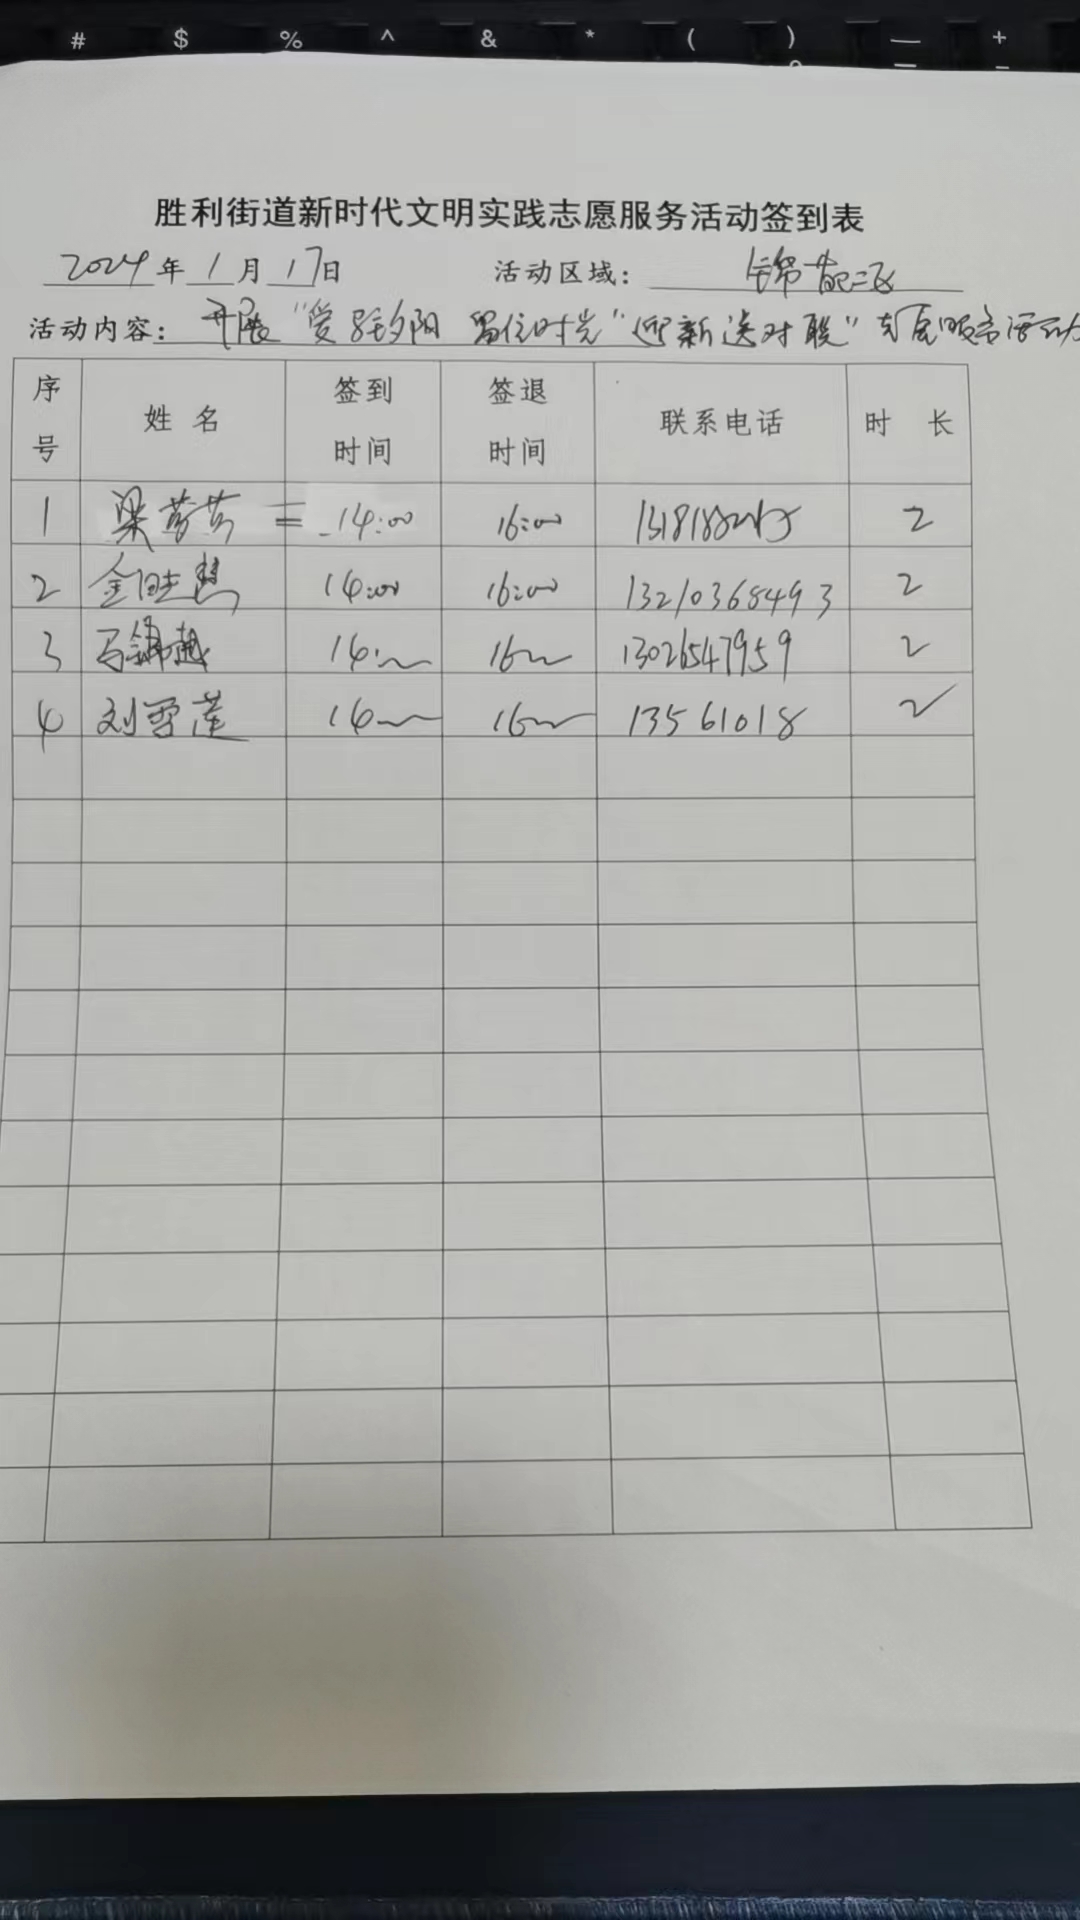 # $ % ^ & * ( ) — +
胜利街道新时代文明实践志愿服务活动签到表
2024年1月17日 活动区域：锦苑二区
活动内容：开展"爱轻夕阳 留住时光"迎新送对联"志愿服务活动
序号 姓名 签到时间 签退时间 联系电话 时长
1 梁芳芳 14:00 16:00 2
2 金 14:00 16:00 13210368493 2
3 马 越 14: 16 13026547959 2
4 刘雪莲 14 16 13561018 2